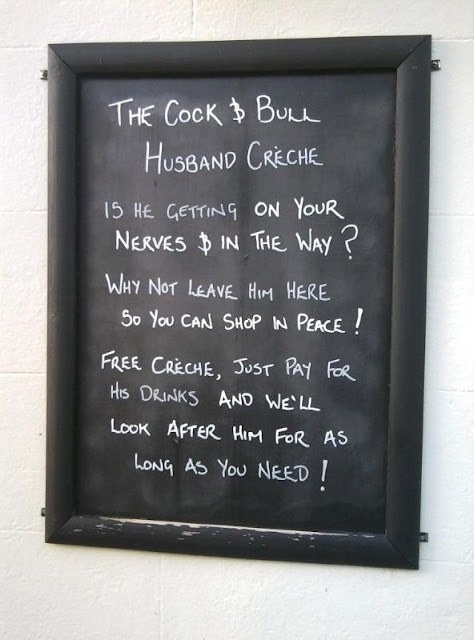 THE COCK & BULL
HUSBAND CRÈCHE
IS HE GETTING ON YOUR
NERVES & IN THE WAY?
WHY NOT LEAVE HIM HERE
SO YOU CAN SHOP IN PEACE!
FREE CRÈCHE, JUST PAY FOR
HIS DRINKS AND WE'LL
LOOK AFTER HIM FOR AS
LONG AS YOU NEED!